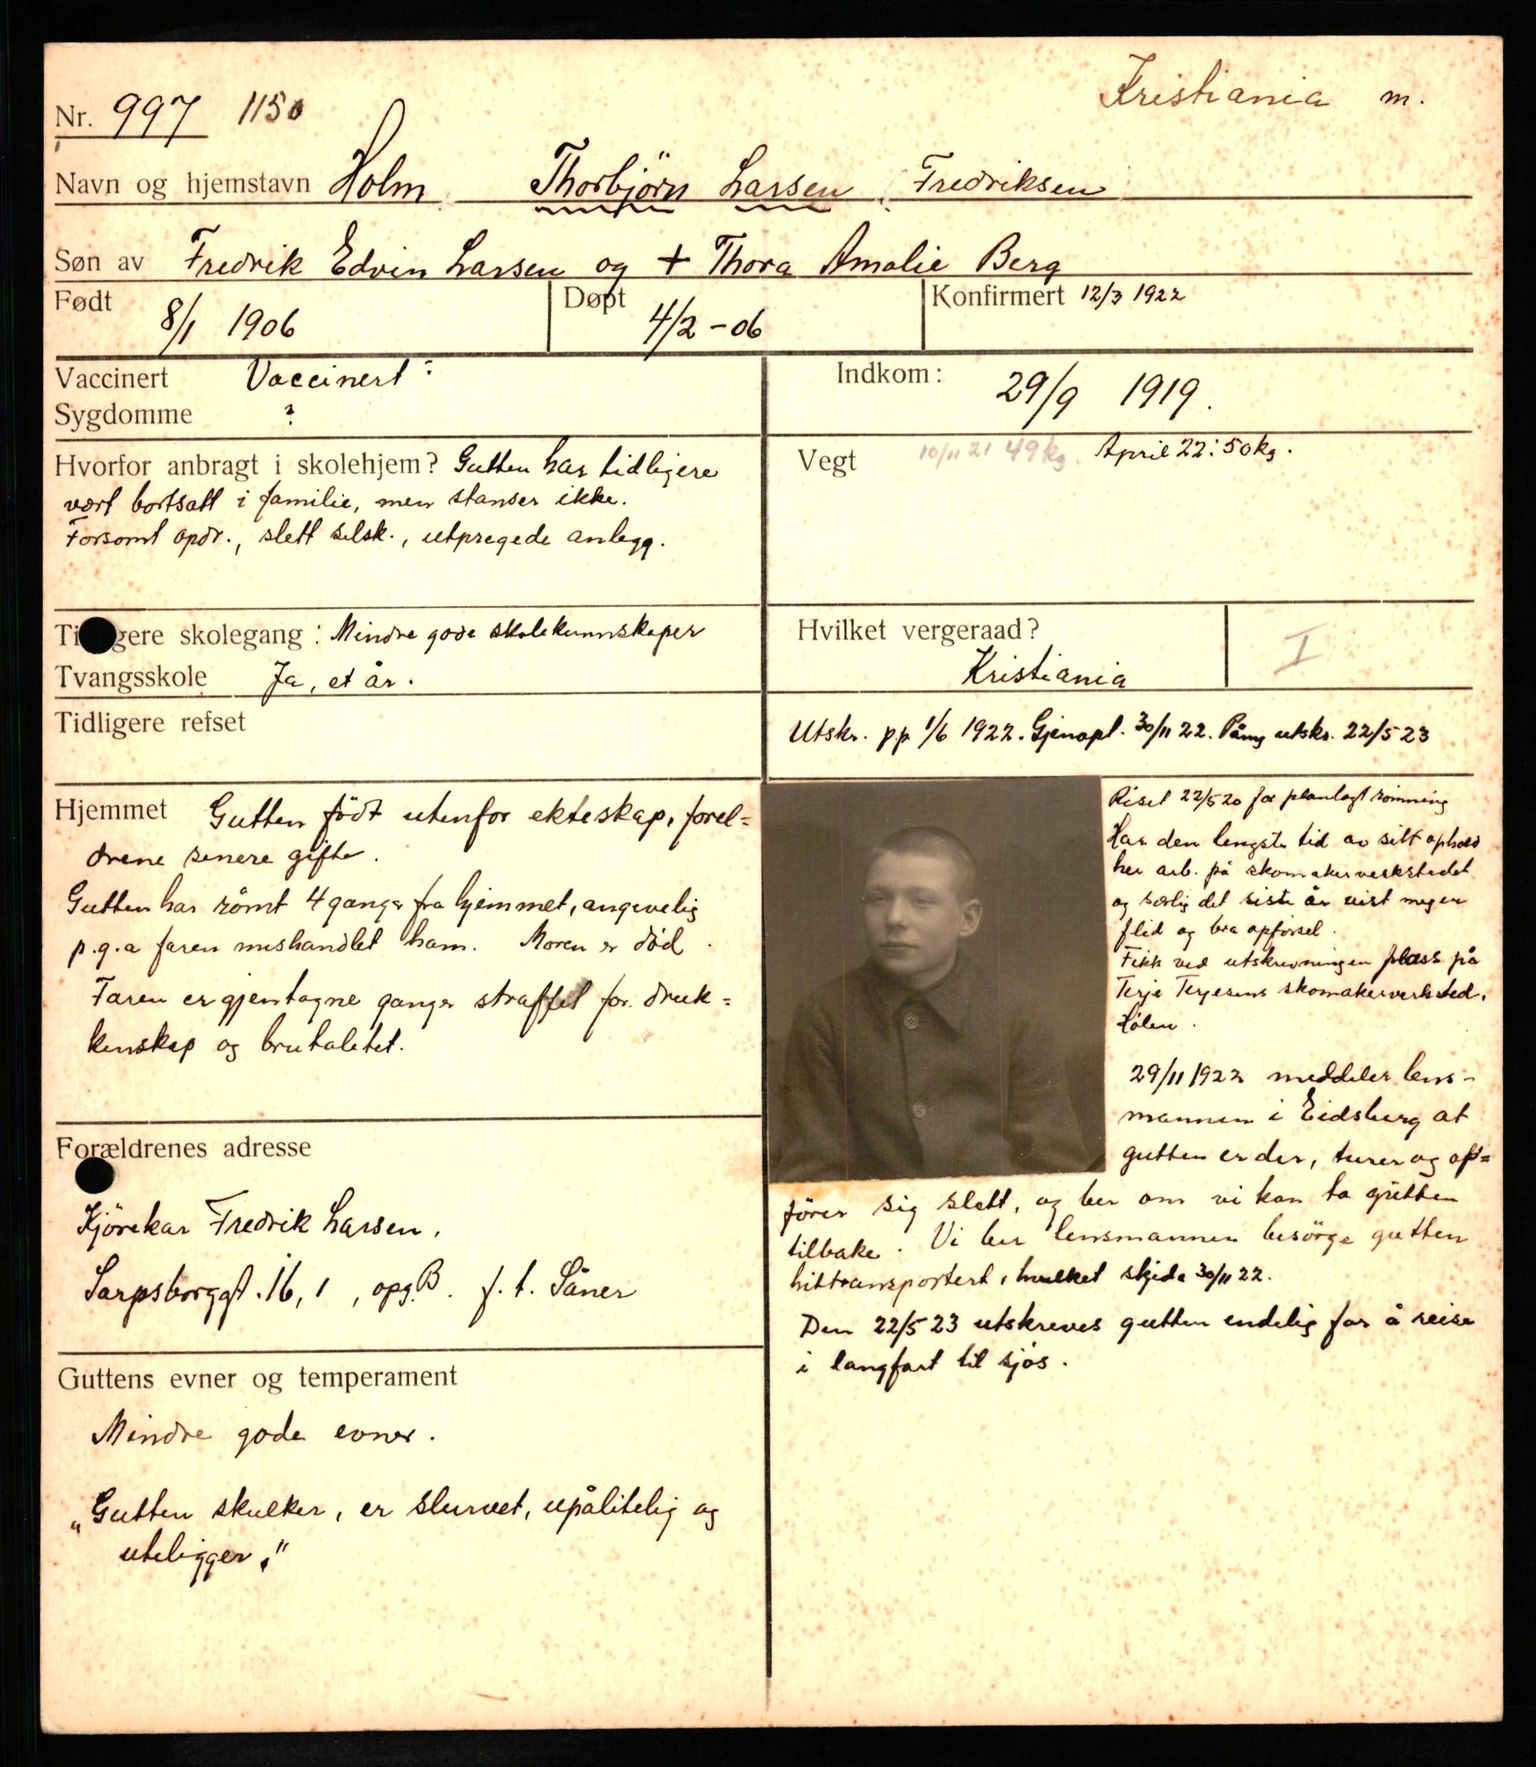 Kristiania m.
Nr. 997 1150
Navn og hjemstavn Holm Thorbjörn Larsen, Fredriksen
Søn av Fredrik Edvin Larsen og + Thora Amalie Berg
Født 8/1 1906
Døpt 4/2 - 06
Konfirmert 12/3 1922
Vaccinert Vaccinert
Sygdomme ?
Indkom: 29/9 1919.
Hvorfor anbragt i skolehjem? Gutten har tidligere
vært bortsatt i familie, men stanser ikke.
Forsømt opdr., slett selsk., utpregede anlegg.
Vegt 10/11 21 49 kg. April 22: 50 kg.
Ti gere skolegang: Mindre gode skolekunnskaper
Tvangsskole Ja, et år.
Hvilket vergeraad?
Kristiania
I
Tidligere refset
Utskr. pp 1/6 1922. Gjenopt. 30/11 22. Påny utskr. 22/5 23
Hjemmet Gutten födt utenfor ekteskap, forel=
drene senere gifte.
Gutten har römt 4 ganger fra hjemmet, angivelig
p.g.a faren mishandlet ham. Moren er död.
Faren er gjentagne ganger straffet for druk=
kenskap og brutalitet.
Forældrenes adresse
Kjörekar Fredrik Larsen,
Sarpsborggt. 16, 1, opg. B. f. t. Såner
Guttens evner og temperament
Mindre gode evner.
„Gutten skulker, er slurvet, upålitelig og
uteligger."
Riset 22/5 20 for planlagt römning
Har den lengste tid av sitt ophold
her arb. på skomakerverkstedet
og særlig det siste år vist megen
flid og bra opförsel.
Fikk ved utskrivningen plass på
Terje Terjesens skomakerverksted,
Hölen.
29/11 1922 meddeler lens-
mannen i Eidsberg at
gutten er der, turer og op=
förer sig slett, og ber om vi kan ta gutten
tilbake. Vi ber lensmannen besörge gutten
hittransportert, hvilket skjedde 30/11 22.
Den 22/5 23 utskreves gutten endelig for å reise
i langfart til sjös.